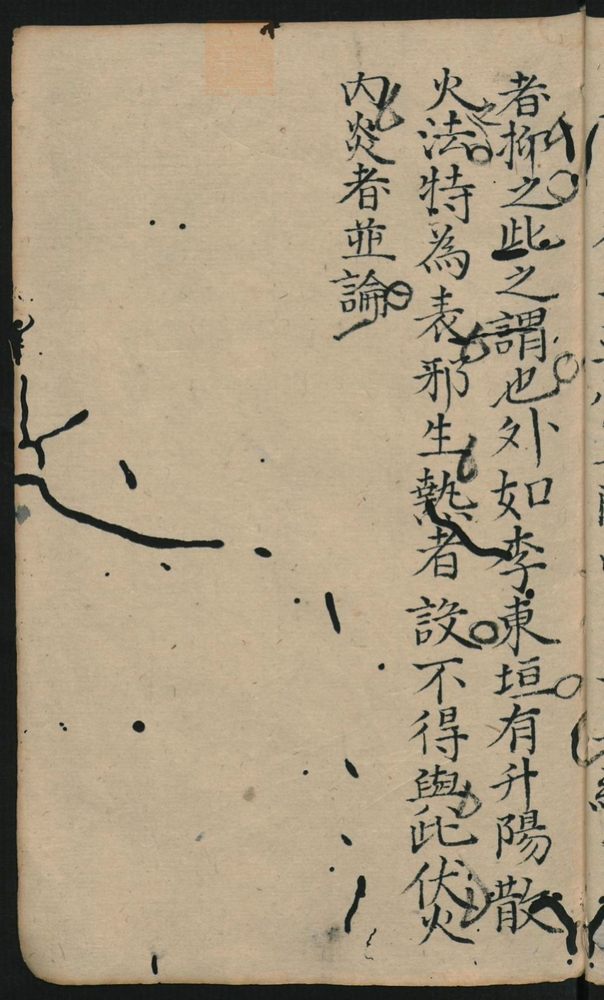 者抑之此之謂也外如李東垣有升陽散
火之法特為表邪生熱者設不得與此伏火
內炎者並論